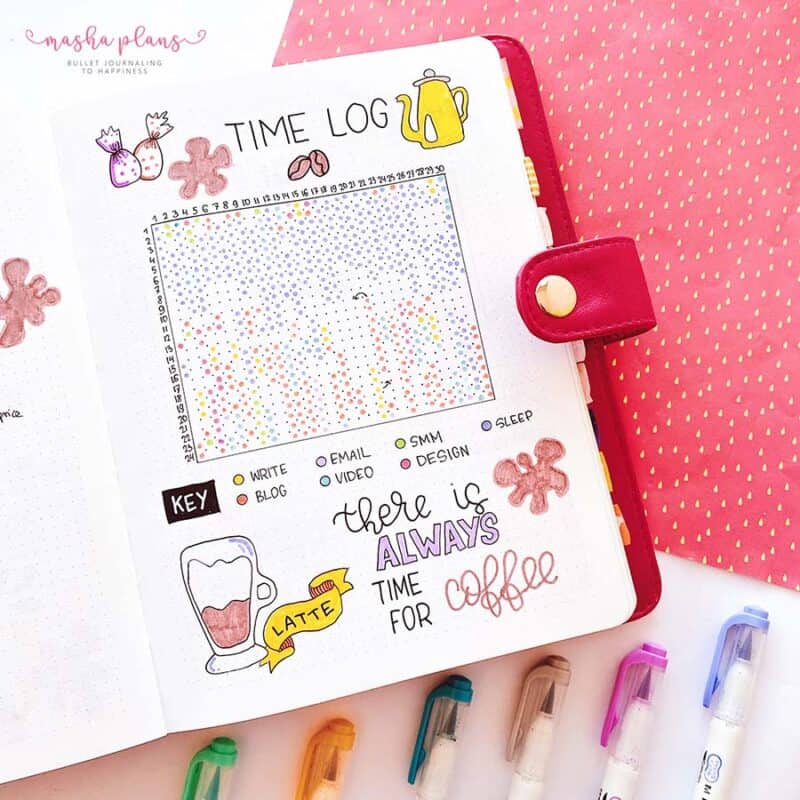 masha plans
BULLET JOURNALING
TO HAPPINESS
TIME LOG
1 2 3 4 5 6 7 8 9 10 11 12 13 14 15 16 17 18 19 20 21 22 23 24 25 26 27 28 29 30
1
2
3
4
5
6
7
8
9
10
11
12
13
14
15
16
17
18
19
20
21
22
23
24
price
KEY
WRITE EMAIL SMM SLEEP
BLOG VIDEO DESIGN
there is
ALWAYS
TIME
FOR coffee
LATTE